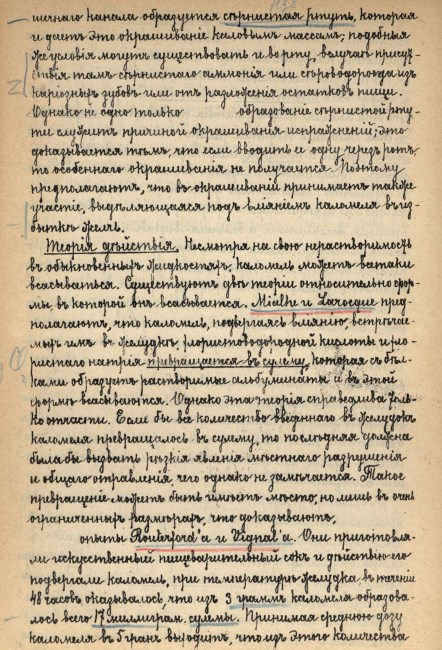 шечнаго канала образуется сѣрнистая ртуть, которая
и даетъ это окрашиваніе каловымъ массамъ; подобныя
же условія могутъ существовать и во рту, въ случаѣ присут-
ствія тамъ сѣрнистаго аммонія или сѣроводорода изъ
каріозныхъ зубовъ или отъ разложенія остатковъ пищи.
Однако не одно только образованіе сѣрнистой рту-
ти служитъ причиной окрашиванія испражненій; это
доказывается тѣмъ, что если вводить ее одну черезъ ротъ,
то особеннаго окрашиванія не получается. Поэтому
предполагаютъ, что въ окрашиваніи принимаетъ также
участіе, выдѣляющаяся подъ вліяніемъ каломеля въ из-
быткѣ желчь.
Теорія дѣйствія. Несмотря на свою нерастворимость
въ обыкновенныхъ жидкостяхъ, каломель можетъ всетаки
всасываться. Существуютъ двѣ теоріи относительно фор-
мы, въ которой онъ всасывается. Mialhe и Larocque пред-
полагаютъ, что каломель, подвергаясь вліянію, встрѣчае-
мыхъ имъ въ желудкѣ, хлористоводородной кислоты и хло-
ристаго натрія превращается въ сулему, которая съ бѣл-
ками образуетъ растворимые альбуминаты и въ этой
формѣ всасываются. Однако эта теорія справедлива толь-
ко отчасти. Если бы все количество введеннаго въ желудокъ
каломеля превращалось въ сулему, то послѣдняя должна
была бы вызвать рѣзкія явленія мѣстнаго разрушенія
и общаго отравленія, чего однако не замѣчается. Такое
превращеніе можетъ быть имѣетъ мѣсто, но лишь въ очень
ограниченныхъ размѣрахъ, что доказываютъ,
опыты Routerford'a и Vignal'a. Они приготовля-
ли искусственный пищеварительный сокъ и дѣйствію его
подвергали каломель, при температурѣ желудка, въ теченіи
48 часовъ оказывалось, что изъ 3 граммъ каломеля образова-
лось всего 17 миллиграм. сулемы. Принимая среднюю дозу
каломеля въ 5 гранъ выходитъ, что изъ этого количества